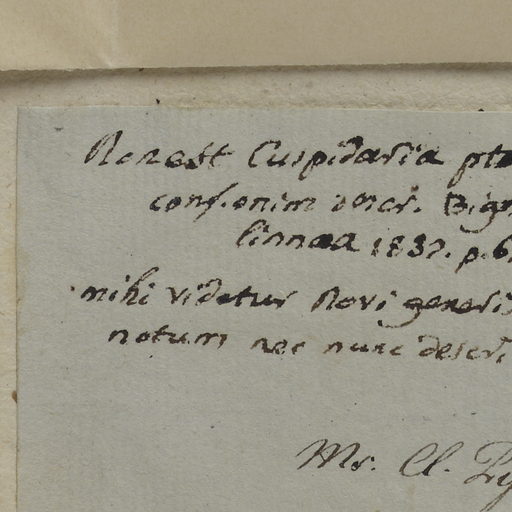 Non est Cuspidaria pte
conf. enim descr. Bign
linnæa 1837. p. 6
mihi videtur Novi generis
notum nec nunc descri
Mr. Cl.